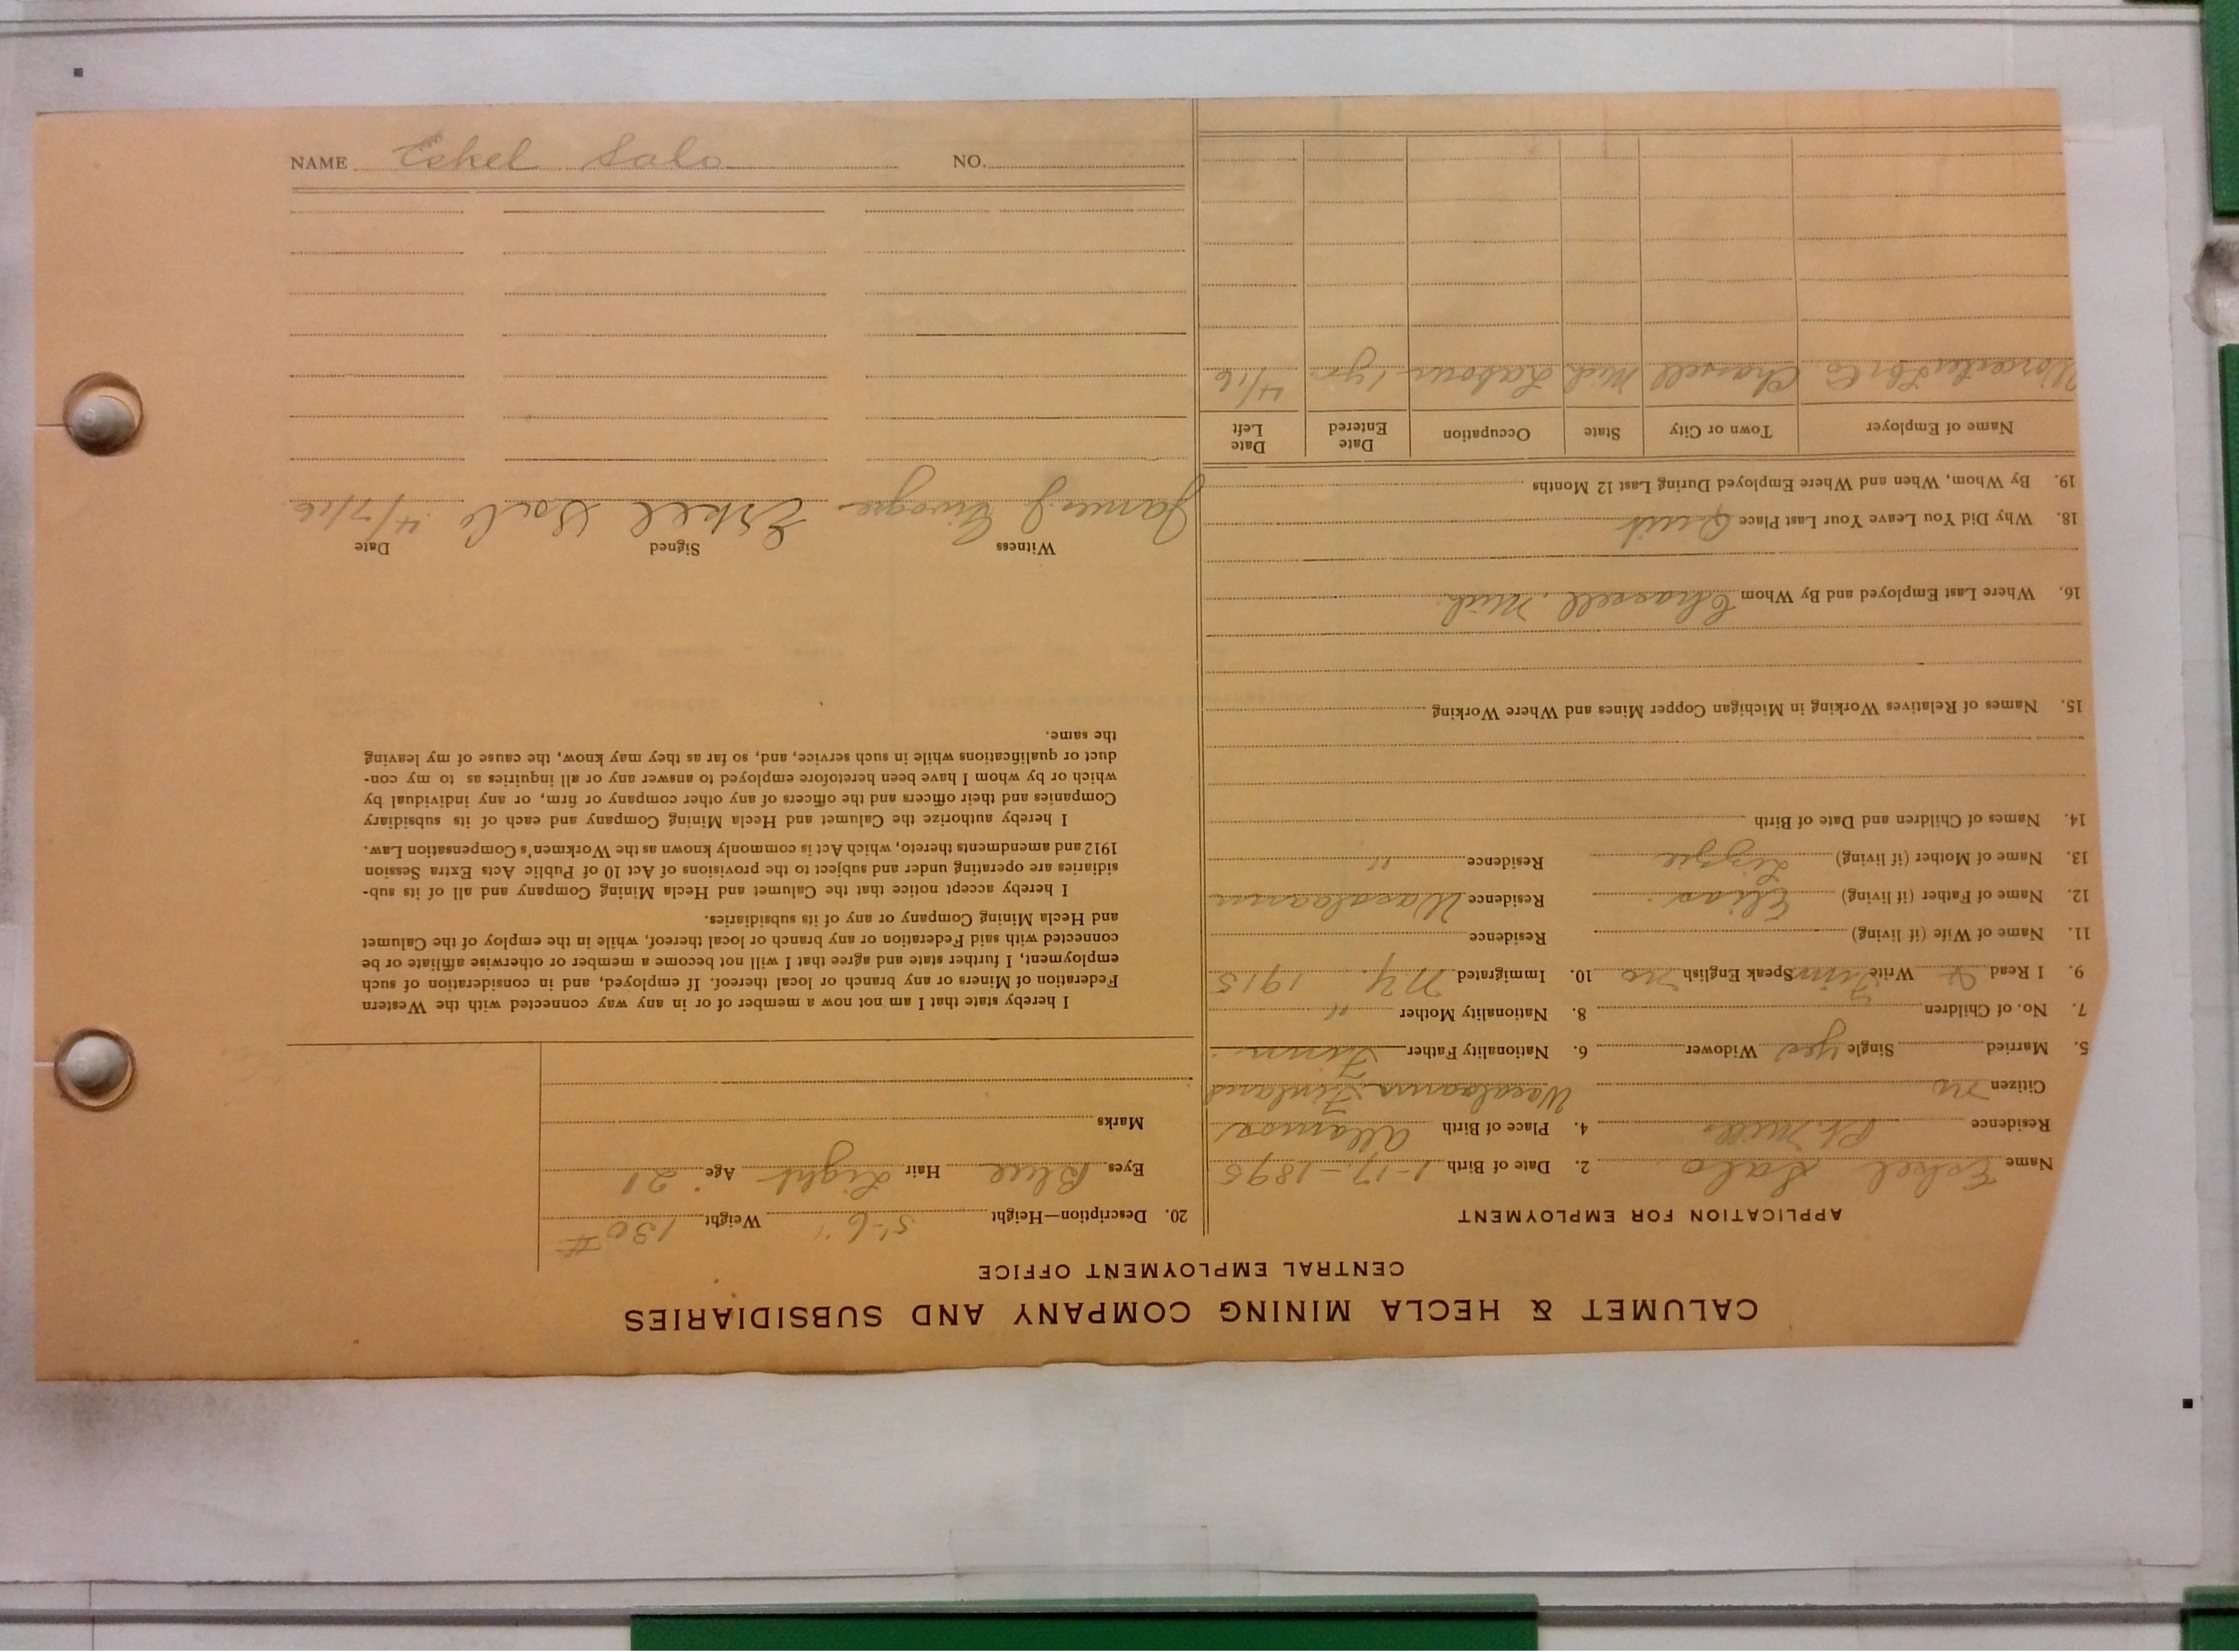 CALUMET & HECLA MINING COMPANY AND SUBSIDIARIES
CENTRAL EMPLOYMENT OFFICE
APPLICATION FOR EMPLOYMENT
Name Eskel Salo 2. Date of Birth 1-17-1895
Residence Pt. Mills 4. Place of Birth
Citizen no Finland
5. Married Single yes Widower 6. Nationality Father Finn
7. No. of Children 8. Nationality Mother "
9. I Read & Write Finn Speak English no 10. Immigrated N.Y. 1915
11. Name of Wife (if living) Residence
12. Name of Father (if living) Elias Residence
13. Name of Mother (if living) Lizzie Residence "
14. Names of Children and Date of Birth
15. Names of Relatives Working in Michigan Copper Mines and Where Working
16. Where Last Employed and By Whom Chassell, Mich.
18. Why Did You Leave Your Last Place Quit
19. By Whom, When and Where Employed During Last 12 Months
Name of Employer Town or City State Occupation Date Entered Date Left
Worcester Lbr Co Chassell Mich Labour 1 yr. 4/16
20. Description—Height 5'-6" Weight 130 #
Eyes Blue Hair Light Age 21
Marks
I hereby state that I am not now a member of or in any way connected with the Western
Federation of Miners or any branch or local thereof. If employed, and in consideration of such
employment, I further state and agree that I will not become a member or otherwise affiliate or be
connected with said Federation or any branch or local thereof, while in the employ of the Calumet
and Hecla Mining Company or any of its subsidiaries.
I hereby accept notice that the Calumet and Hecla Mining Company and all of its sub-
sidiaries are operating under and subject to the provisions of Act 10 of Public Acts Extra Session
1912 and amendments thereto, which Act is commonly known as the Workmen's Compensation Law.
I hereby authorize the Calumet and Hecla Mining Company and each of its subsidiary
Companies and their officers and the officers of any other company or firm, or any individual by
which or by whom I have been heretofore employed to answer any or all inquiries as to my con-
duct or qualifications while in such service, and, so far as they may know, the cause of my leaving
the same.
Witness Signed Date
James J. Eskel Salo 4/7/16
NAME Eskel Salo NO.